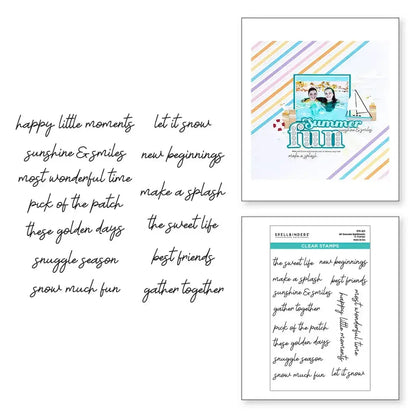 happy little moments
sunshine & smiles
most wonderful time
pick of the patch
these golden days
snuggle season
snow much fun
let it snow
new beginnings
make a splash
the sweet life
best friends
gather together
Summer
fun
make a splash
SPELLBINDERS
CLEAR STAMPS
the sweet life
new beginnings
make a splash
best friends
sunshine & smiles
gather together
pick of the patch
these golden days
snuggle season
snow much fun
most wonderful time
happy little moments
let it snow